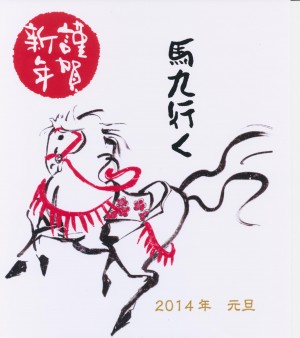 謹賀
新年
馬九行く
2014年 元旦